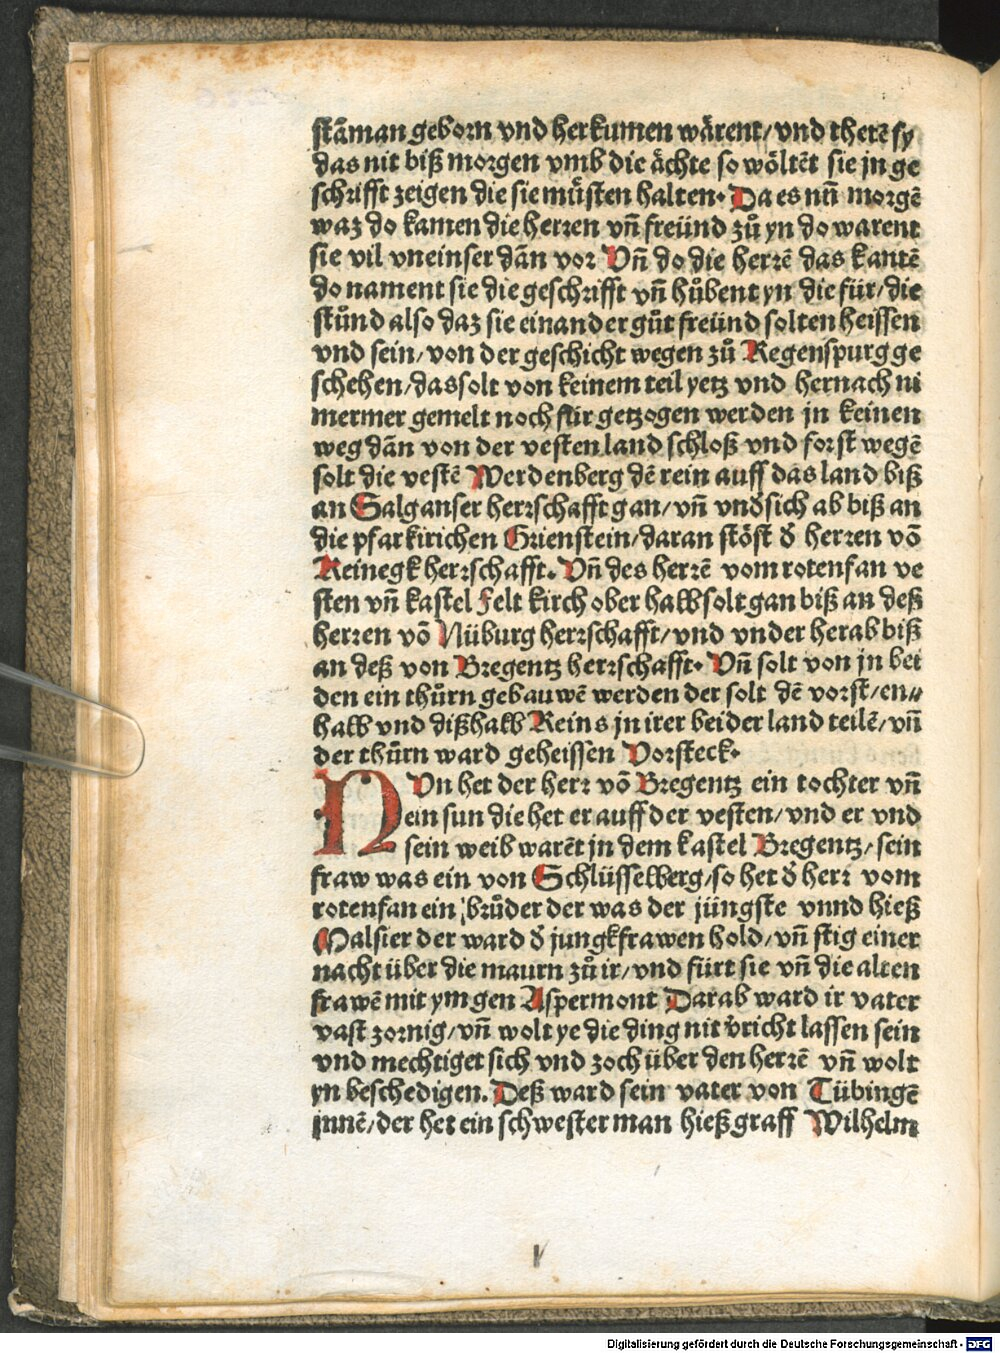 stāman geborn vnd herkumen wårent/vnd thetẽ sy
das nit biß morgen vmb die åchte so wöltẽt sie jn ge
schrifft zeigen die sie můsten halten. Da es nun morgẽ
waz do kamen die herren vñ freünd zů yn do warent
sie vil vneinser dān vor Vñ do die herrẽ das kantẽ
do nament sie die geschrifft vñ hůbent yn die für/die
stůnd also daz sie einander gůt freünd solten heissen
vnd sein/von der geschicht wegen zů Regenspurg ge
schehen/das solt von keinem teil yetz vnd hernach ni
mermer gemelt noch für getzogen werden jn keinen
weg dān von der vesten land schloß vnd forst wegẽ
solt die vestẽ Werdenberg dẽ rein auff das land biß
an Salganser herrschafft gan/vñ vndsich ab biß an
die pfarkirichen Grienstein/daran stöst d̕ herren võ
Reinegk herrschafft. Vñ des herrẽ vom rotenfan ve
sten vñ kastel Felt kirch ober halb solt gan biß an deß
herren võ Nüburg herrschafft/vnd vnder herab biß
an deß von Bregentz herrschafft. Vñ solt von jn bei
den ein thůrn gebauwẽ werden der solt dẽ vorst/en⸗
halb vnd dißhalb Reins jn irer beider land teilẽ/vñ
der thůrn ward geheissen Vorsteck.
NVn het der herr võ Bregentz ein tochter vñ
ein sun die het er auff der vesten/vnd er vnd
sein weib warẽt jn dem kastel Bregentz/sein
fraw was ein von Schlüsselberg/so het d̕ herr vom
rotenfan ein brůder der was der jüngste vnnd hieß
Malsier der ward d̕ jungkfrawen hold/vñ stig einer
nacht über die maurn zů ir/vnd fürt sie vñ die alten
frawẽ mit ym gen Aspermont Darab ward ir vater
vast zornig/vñ wolt ye die ding nit v̕richt lassen sein
vnd mechtiget sich vnd zoch über den herrẽ vñ wolt
yn beschedigen. Deß ward sein vater von Tübingẽ
innẽ/der het ein schwester man hieß graff Wilhelm
Digitalisierung gefördert durch die Deutsche Forschungsgemeinschaft - DFG